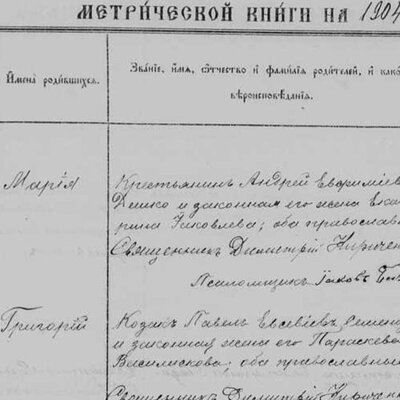 МЕТРИ́ЧЕСКОЙ КНИ́ГИ НА 1904
Имена̀ роди́вшихся.
Зва́нїе, и́мѧ, ѻ҆́тчество и҆ фами́лїѧ роди́телей, и҆ како
вѣроисповѣ́данїѧ.
Марія
Крестьянинъ Андрей Евфиміев
и законная его жена Ека
рина Яковлева; оба православ
Священникъ Димитрій Кириченк
Псаломщикъ Іаковъ
Григорій
Козакъ Павелъ Евсевіевъ
и законная жена его Параскева
Василискова; оба православные
Священникъ Димитрій Кириченк